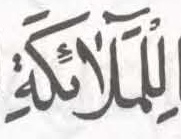 لِلْمَلَائِكَةِ